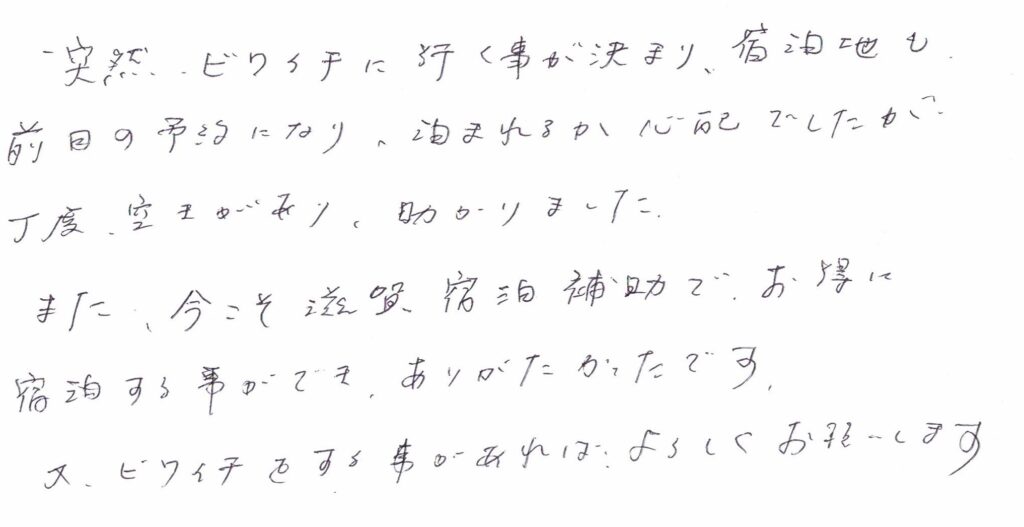 突然、ビワイチに行く事が決まり、宿泊地も
前日の予約になり、泊まれるか心配でしたが
丁度、空きがあり、助かりました。
また、今こそ滋賀、宿泊補助で、お得に
宿泊する事ができ、ありがたかったです。
又、ビワイチをする事があれば、よろしくお願いします